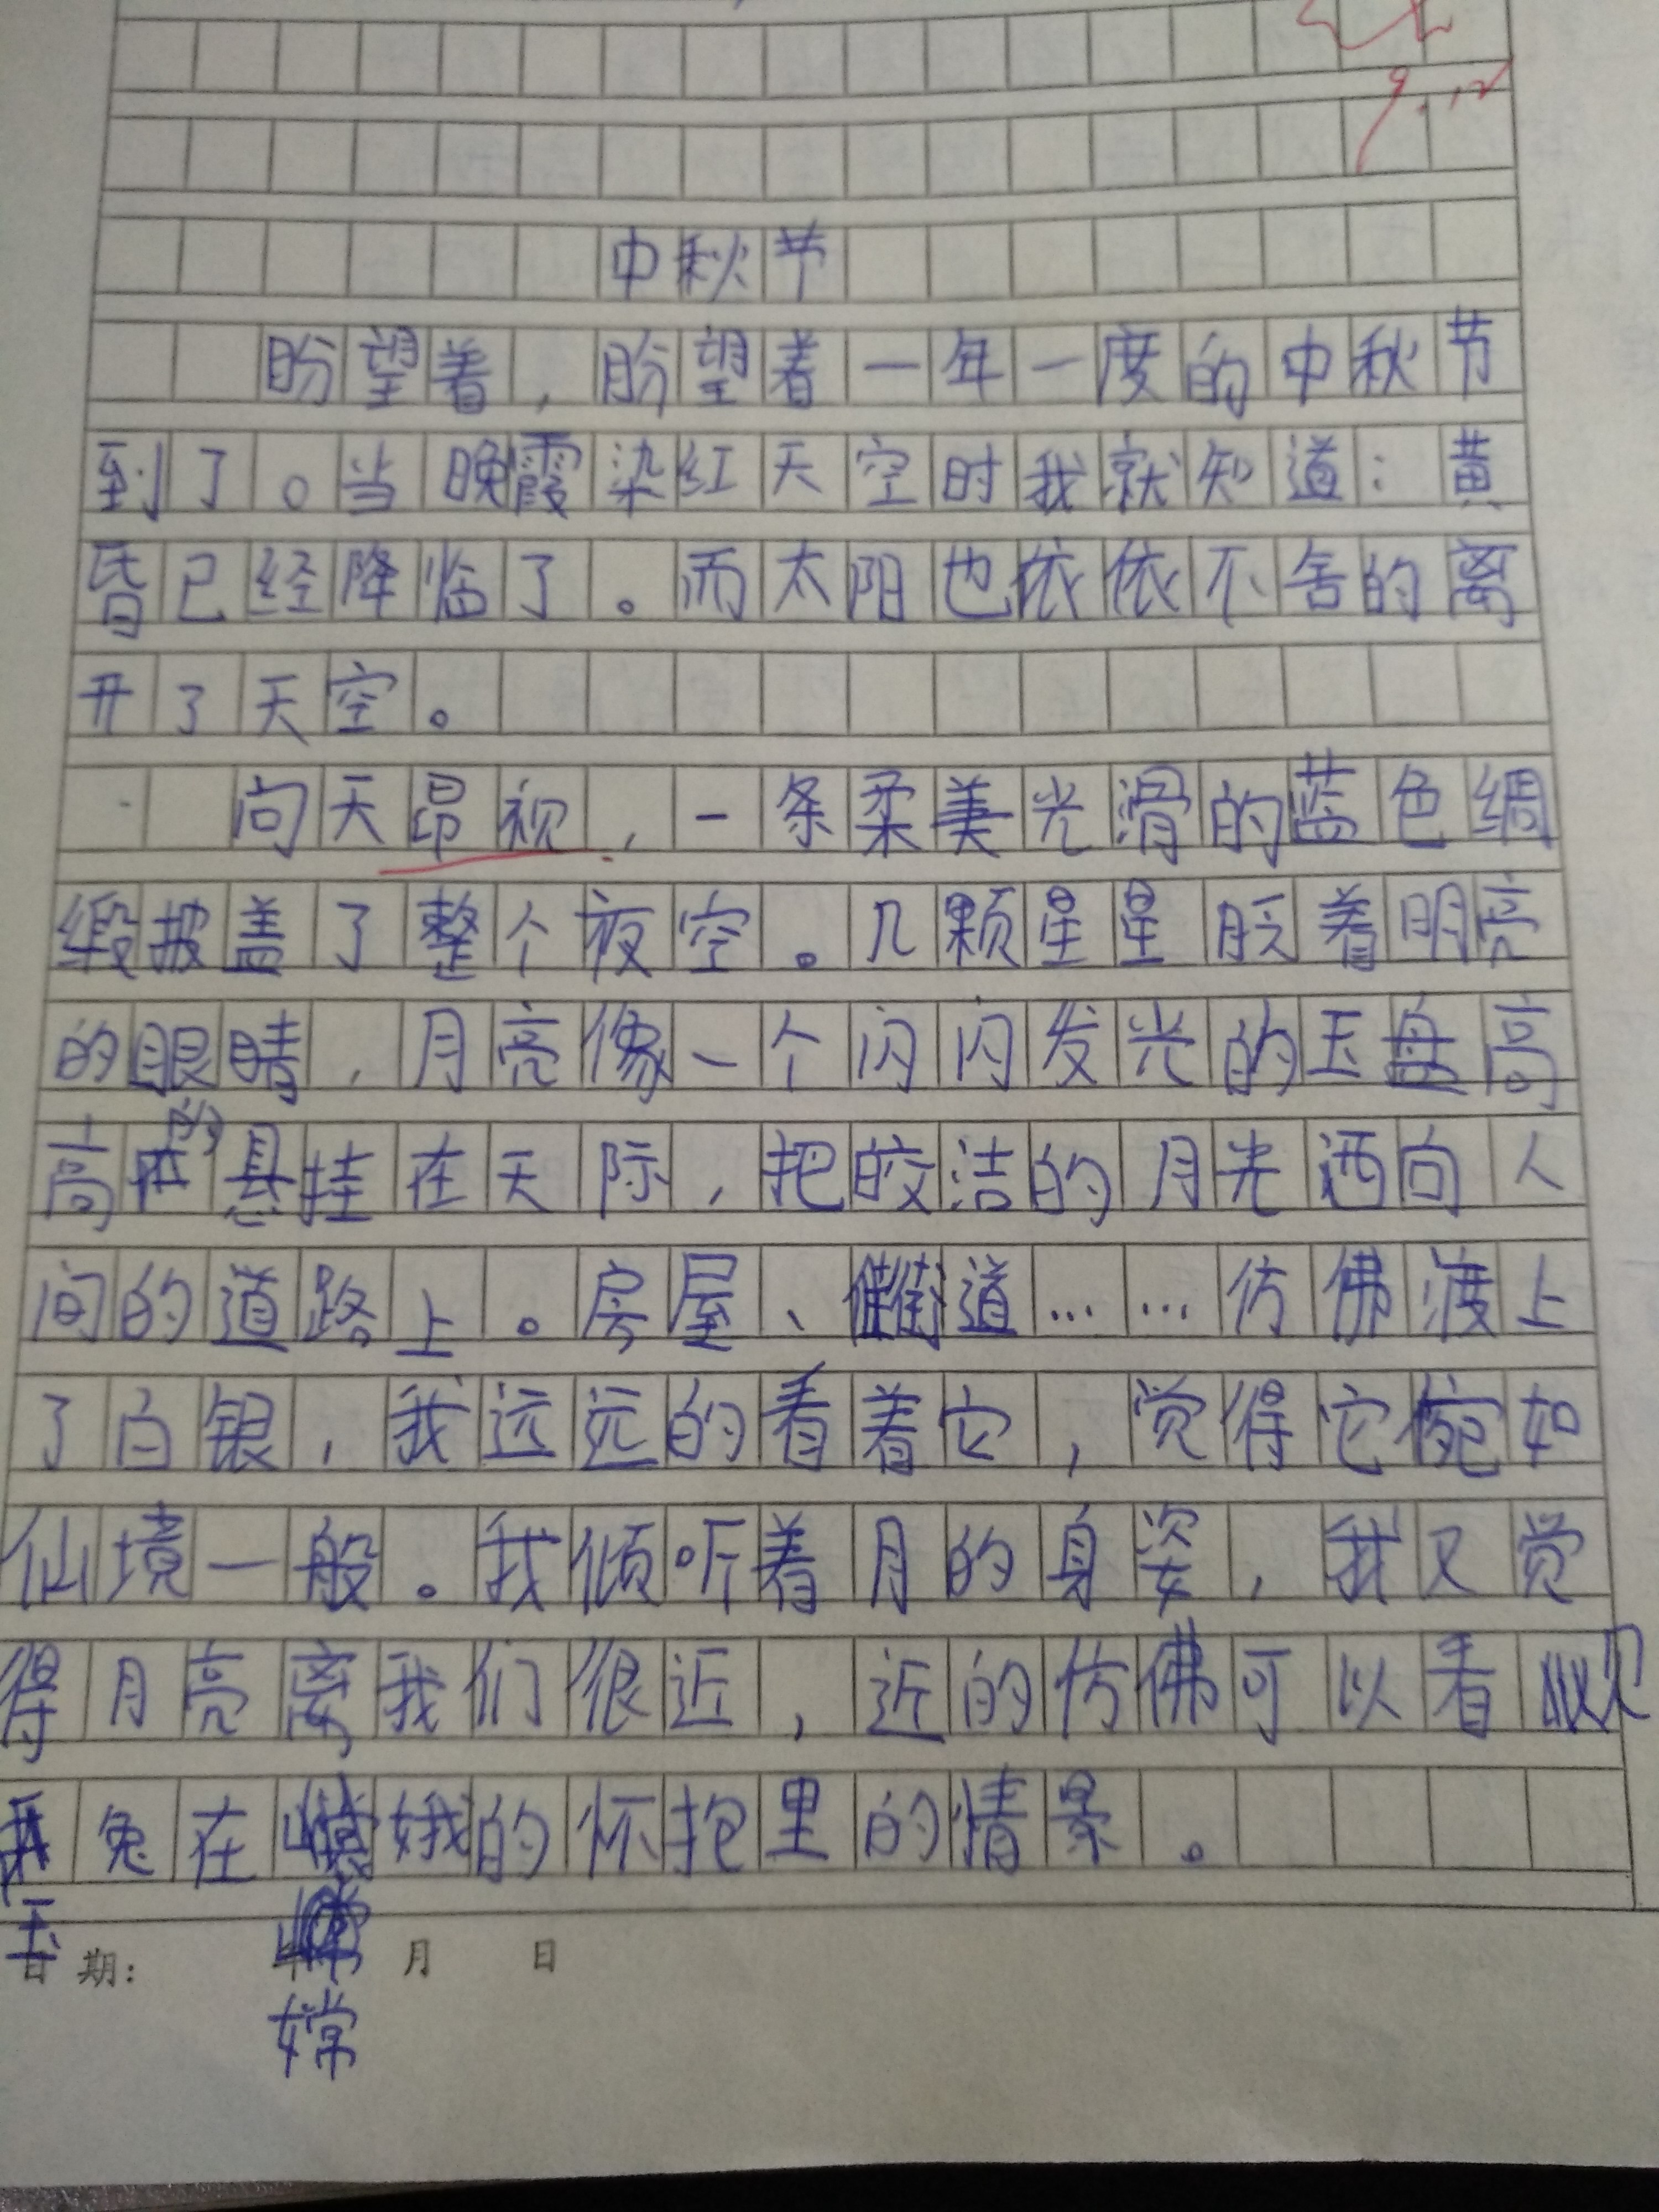 9.12
中秋节
盼望着,盼望着一年一度的中秋节
到了。当晚霞染红天空时我就知道:黄
昏已经降临了。而太阳也依依不舍的离
开了天空。
向天昂视,一条柔美光滑的蓝色绸
缎披盖了整个夜空。几颗星星眨着明亮
的眼睛,月亮像一个闪闪发光的玉盘高
高的悬挂在天际,把皎洁的月光洒向人
间的道路上。房屋、街道……仿佛渡上
了白银,我远远的看着它,觉得它宛如
仙境一般。我倾听着月的身姿,我又觉
得月亮离我们很近,近的仿佛可以看
玉兔在嫦娥的怀抱里的情景。
日期: 年 月 日